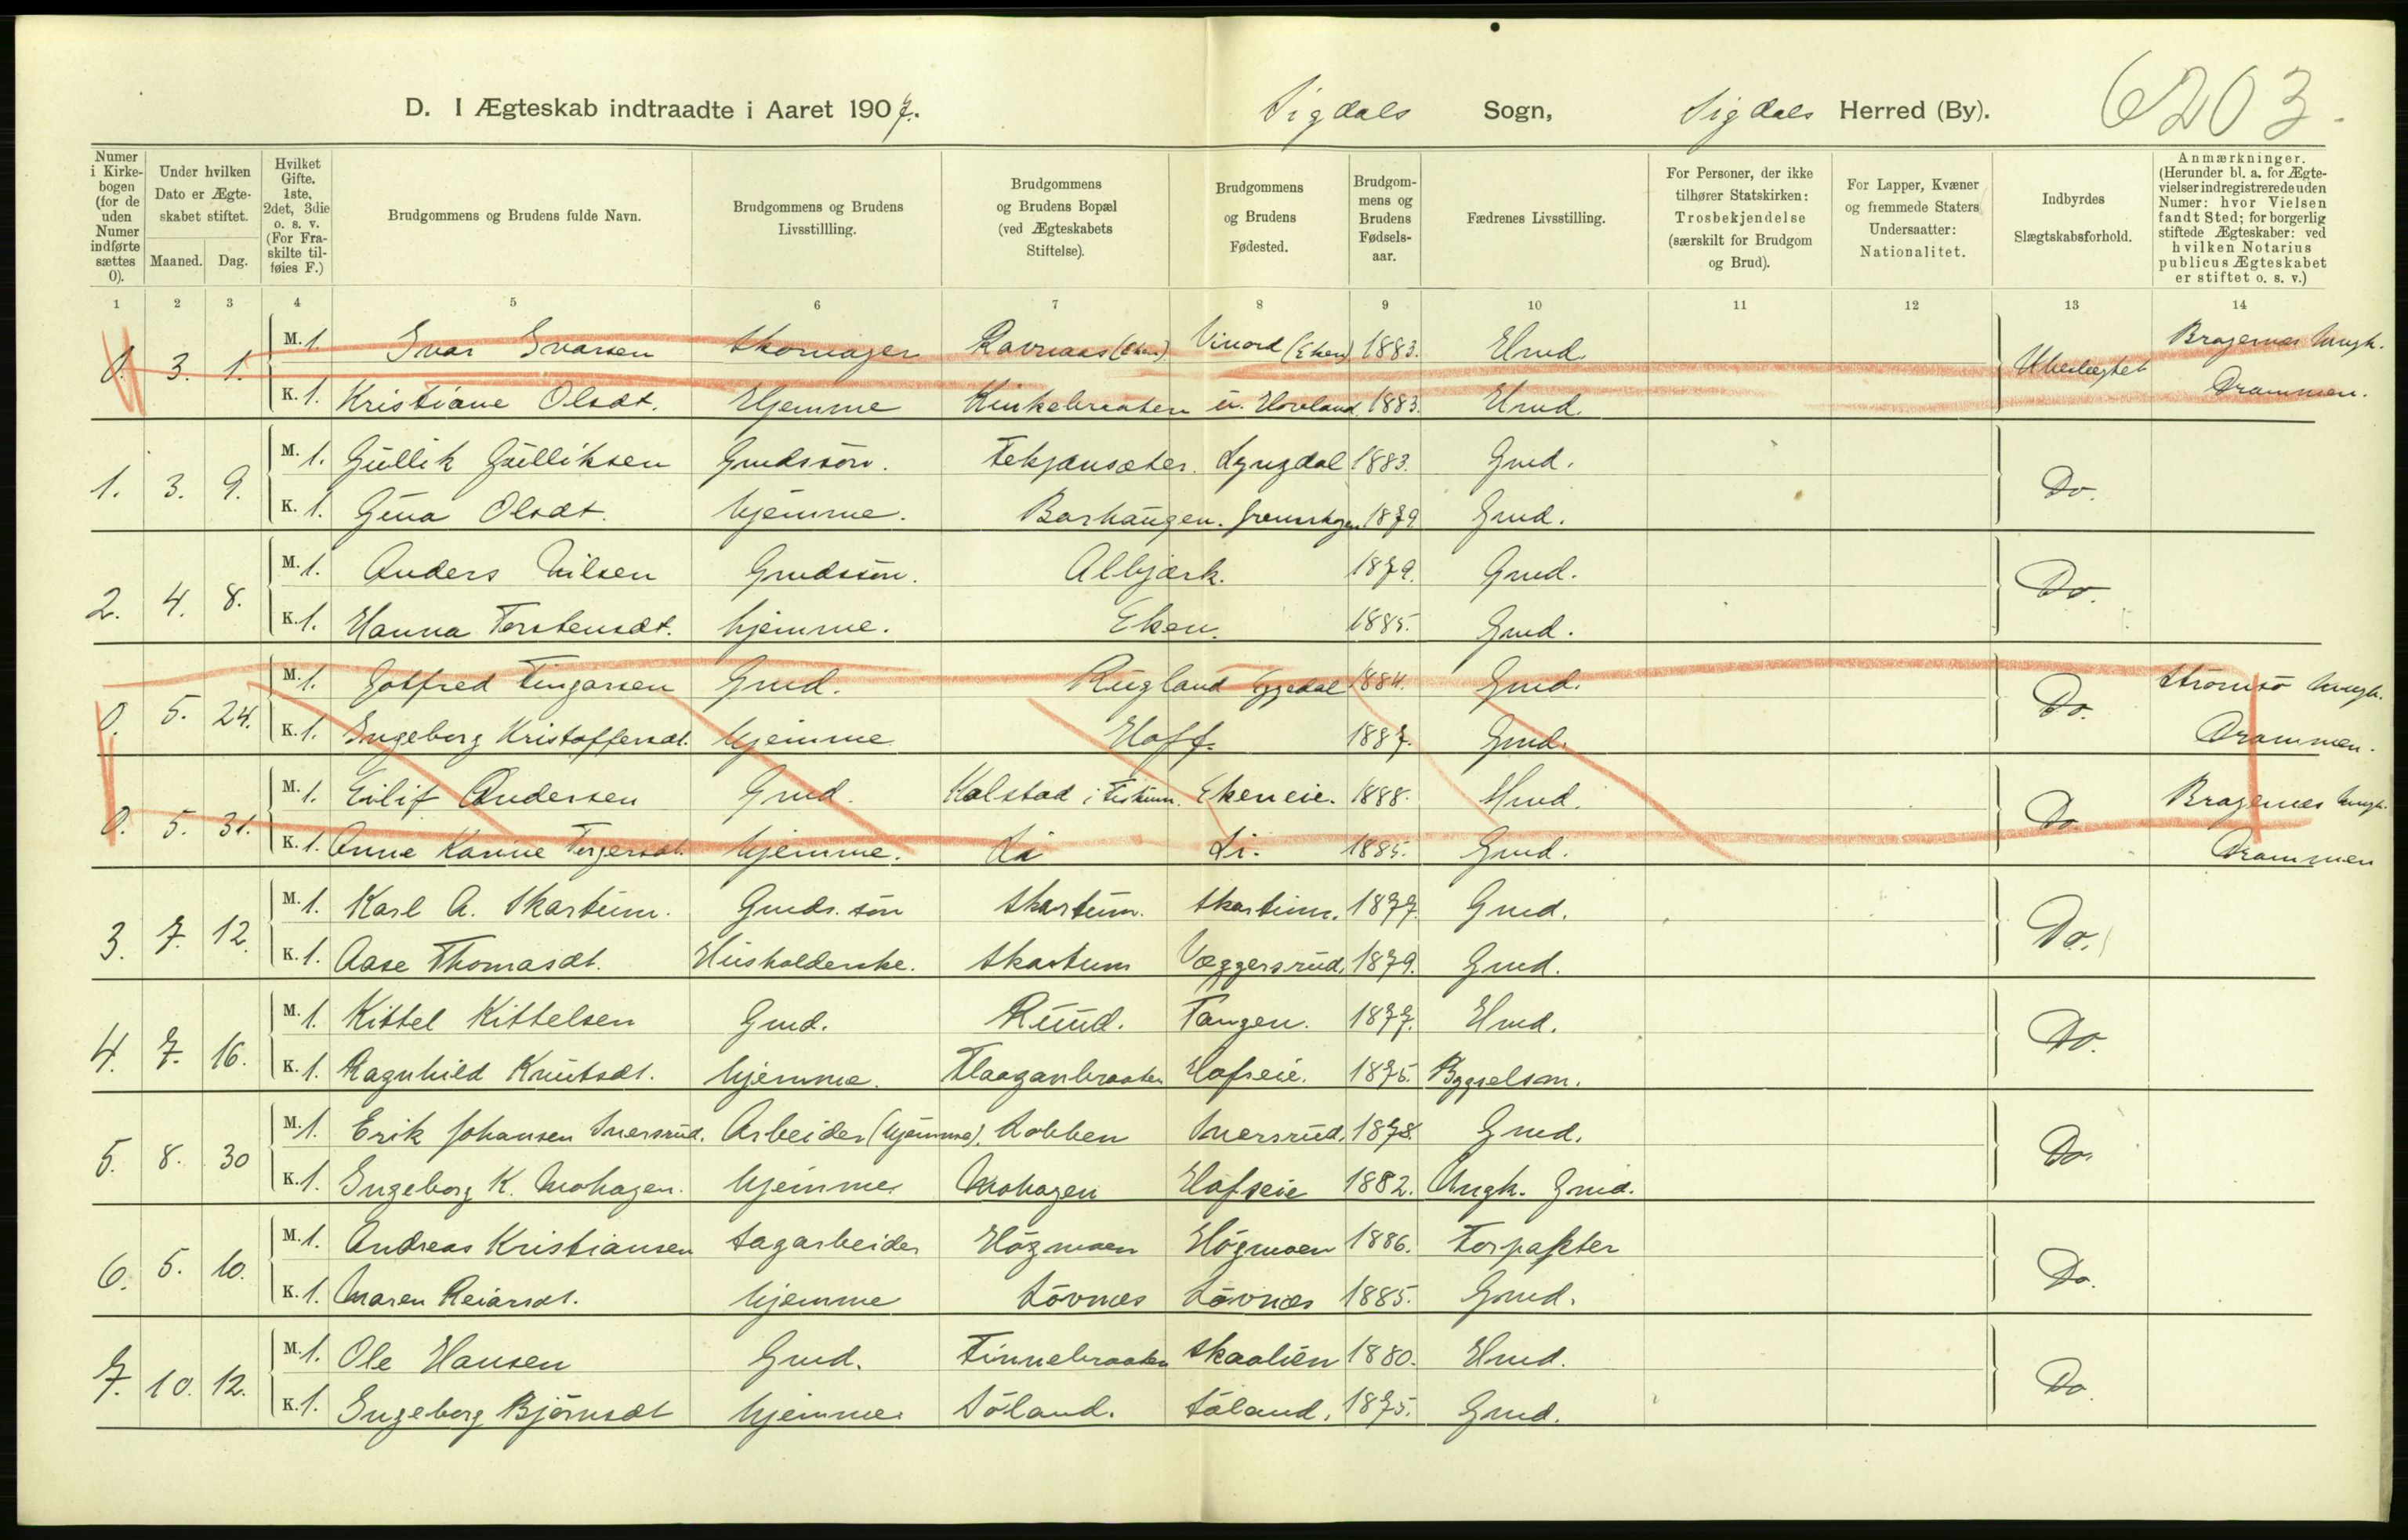 D. I Ægteskab indtraadte i Aaret 1907. Sigdals Sogn, Sigdals Herred (By). 6203.
Numer i Kirkebogen (for de uden Numer indførte sættes 0).
Under hvilken Dato er Ægteskabet stiftet.
Maaned. Dag.
Hvilket Gifte. 1ste, 2det, 3die o. s. v. (For Fraskilte tilføies F.)
Brudgommens og Brudens fulde Navn.
Brudgommens og Brudens Livsstillling.
Brudgommens og Brudens Bopæl (ved Ægteskabets Stiftelse).
Brudgommens og Brudens Fødested.
Brudgommens og Brudens Fødselsaar.
Fædrenes Livsstilling.
For Personer, der ikke tilhører Statskirken: Trosbekjendelse (særskilt for Brudgom og Brud).
For Lapper, Kvæner og fremmede Staters Undersaatter: Nationalitet.
Indbyrdes Slægtskabsforhold.
Anmærkninger. (Herunder bl. a. for Ægtevielser indregistrerede uden Numer: hvor Vielsen fandt Sted; for borgerlig stiftede Ægteskaber: ved hvilken Notarius publicus Ægteskabet er stiftet o. s. v.)
1 2 3 4 5 6 7 8 9 10 11 12 13 14
0. 3. 1. M. 1. Ivar Ivarsen Skomager Ravnaas (Eken) Vinord (Eken) 1883. Hmd. Ubeslægtet Bragernes Mngh.
K. 1. Kristiane Olsdt. Hjemme Kinkebraaten u. Hovland. 1883. Hmd. Drammen.
1. 3. 9. M. 1. Gullik Gulliksen Gmdssøn. Lyngdal 1883. Gmd. Do.
K. 1. Gina Olsdt. hjemme. Barhaugen. 1879 Gmd.
2. 4. 8. M. 1. Anders Nilsen Gmdssøn. Albjærk. 1879. Gmd. Do.
K. 1. Hanna Torstensdt. hjemme. Eken. 1885. Gmd.
0. 5. 24. M. 1. Gotfred Tingarsen Gmd. Rugland Eggedal 1884. Gmd. Do. Strømsø Mngh.
K. 1. Ingeborg Kristoffersdt. hjemme Hoff. 1887. Gmd. Drammen.
0. 5. 31. M. 1. Eilif Andersen Gmd. Kolstad i Fiskum. Ekeneie. 1888. Hmd. Do Bragernes Mngh.
K. 1. Anne Karine Torgersdt. hjemme. Li Li. 1885. Gmd. Drammen
3. 7. 12. M. 1. Karl A. Skartum. Gmds. søn Skartum. Skartum. 1877. Gmd. Do.
K. 1. Aase Thomasdt. Husholderske. Skartum Væggersrud, 1879. Gmd.
4. 7. 16. M. 1. Kittel Kittelsen Gmd. Ruud. Tangen. 1877. Hmd. Do.
K. 1. Ragnhild Knutsdt. hjemme. Flaaganbraaten Hofseie. 1875. Bygselsm.
5. 8. 30 M. 1. Erik Johansen Snersrud. Arbeider (hjemme). Kobben Snersrud, 1878. Gmd. Do.
K. 1. Ingeborg K. Mohagen. hjemme Mohagen Hofseie 1882. Ungk. Gmd.
6. 5. 10. M. 1. Andreas Kristiansen Sagarbeider Høgmoen Høgmoen 1886. Forpakter Do.
K. 1. Maren Reiarsdt. hjemme Løvnes Løvnes 1885. Gmd.
7. 10. 12. M. 1. Ole Hansen Gmd. Finnebraaten Skaalien 1880. Hmd. Do.
K. 1. Ingeborg Bjørnsdt hjemme Søland. Søland, 1875. Gmd.